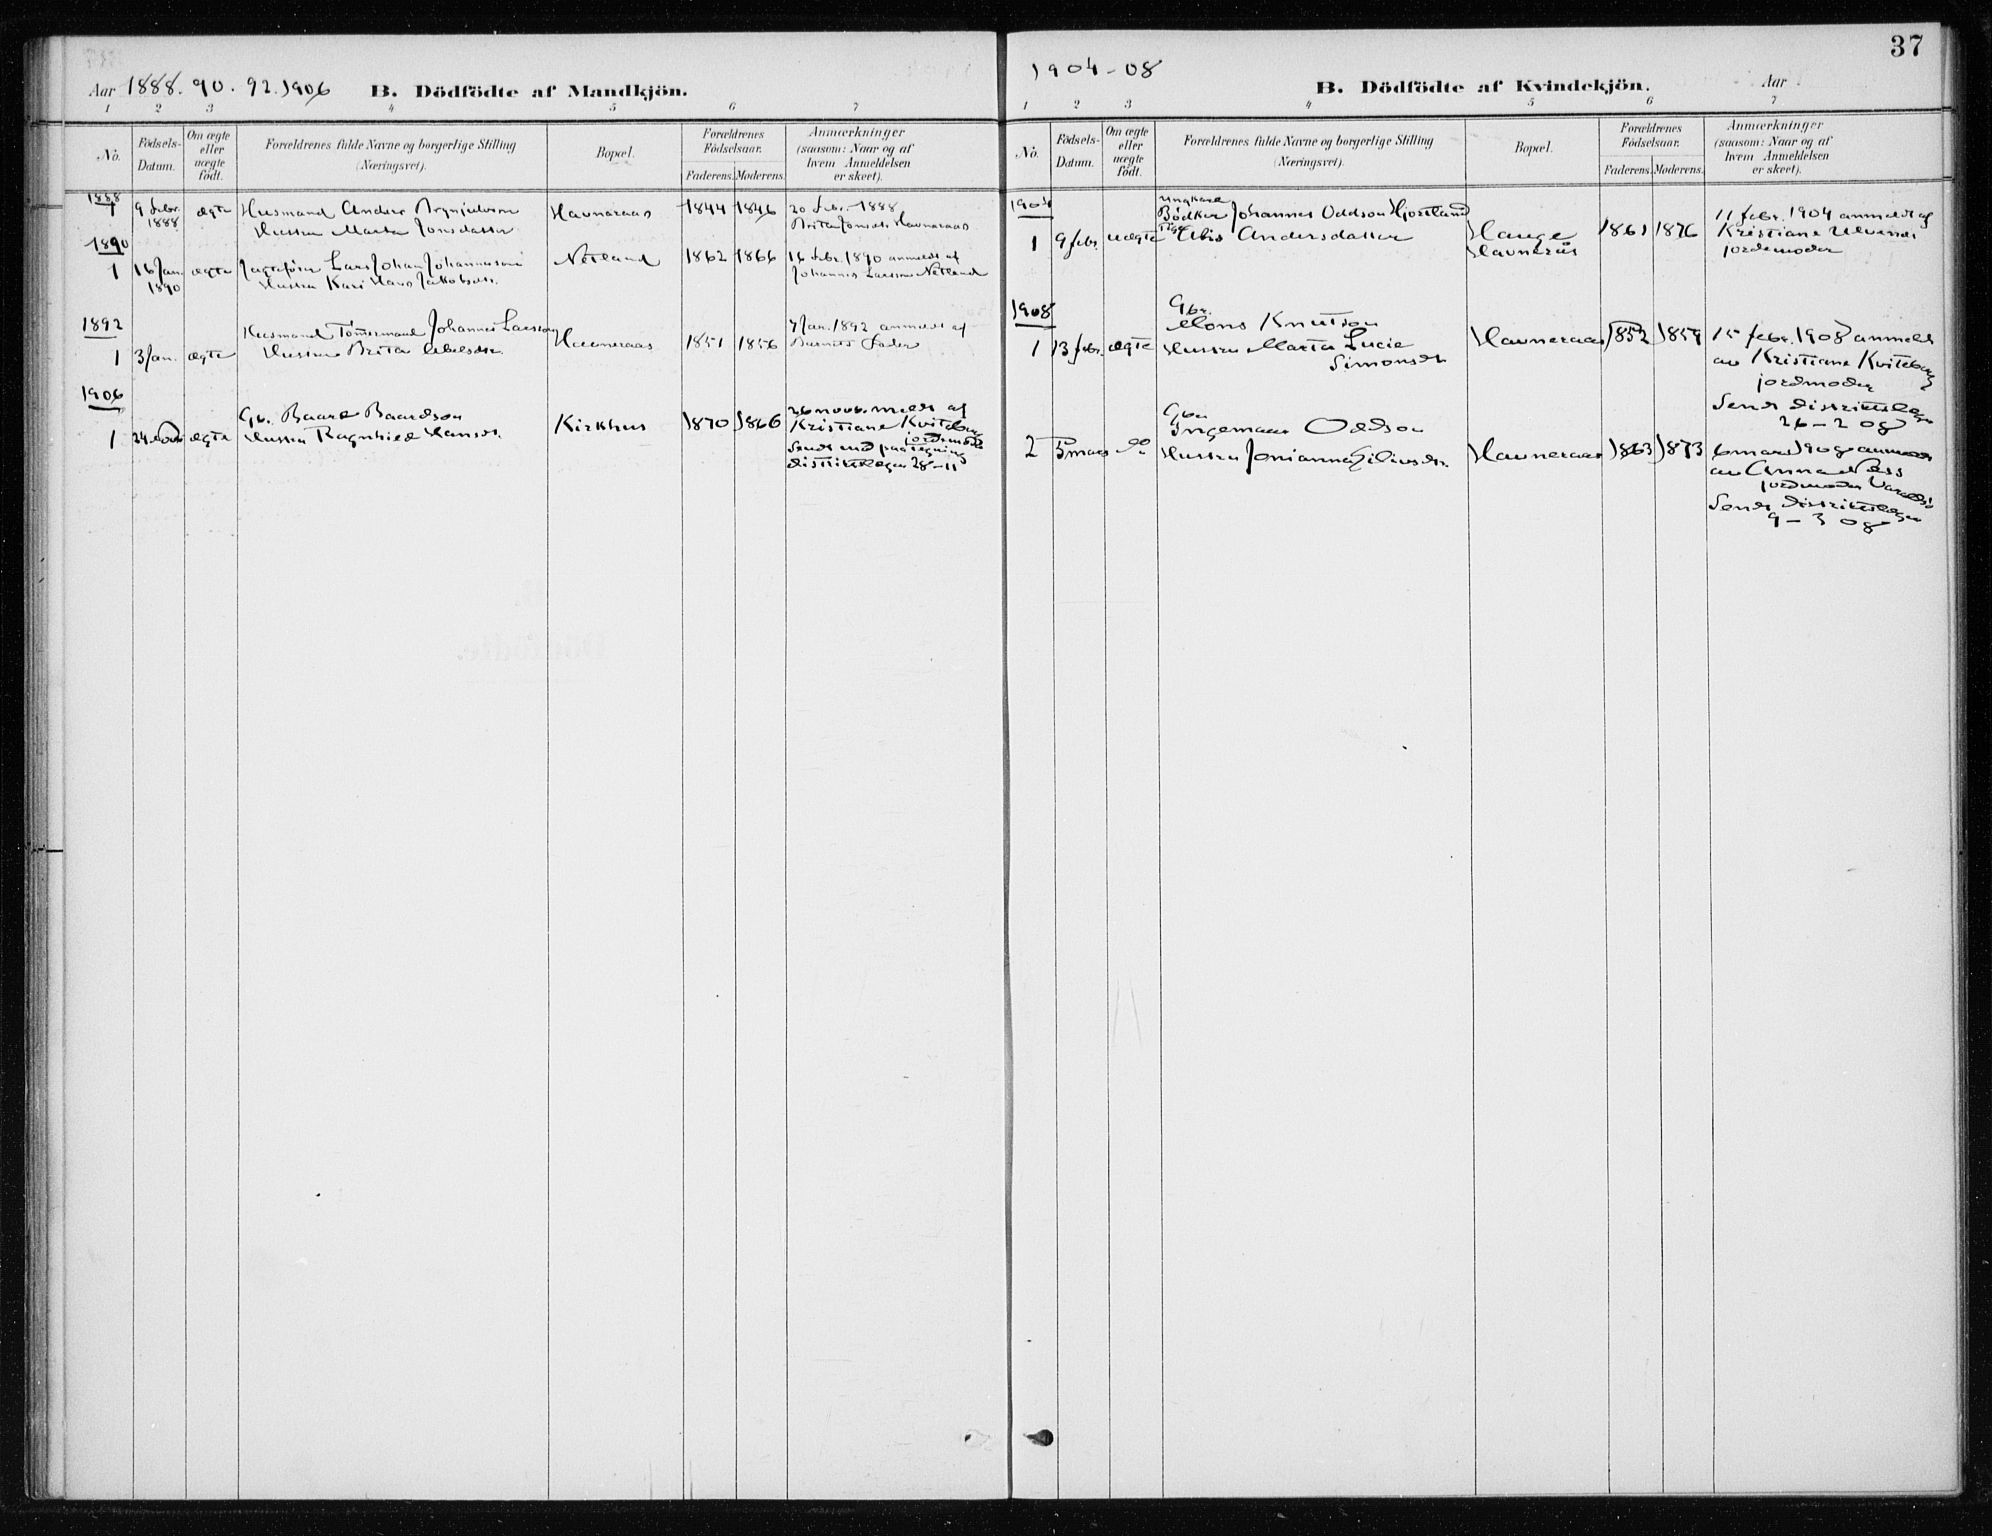 Aar 1888. 90. 92. 1906 B. Dödfödte af Mandkjön.
1 2 3 4 5 6 7
No. Födsels-Datum. Om ægte eller uægte födt. Forældrenes fulde Navne og borgerlige Stilling (Næringsvei). Bopæl. Forældrenes Födselsaar. Faderens. Moderens. Anmærkninger (saasom: Naar og af hvem Anmeldelsen er skeet).
1888
1 9 febr. 1888 ægte Husmand Anders Brynjulvson Havneraas 1844 1846 20 febr. 1888
Hustru Marta Jonsdatter Brita Jonsdr. Havneraas
1890
1 16 Jan. 1890 ægte Jagtefører Lars Johan Johannesson Netland 1862 1866 16 febr. 1890 anmeldt af
Hustru Kari Jakobsdr. Johannes Larsson Netland
1892
1 3 Jan. ægte Husmand Tømermand Johannes Larsson Havneraas 1851 1856 7 Jan. 1892 anmeldt af
Hustru Brita Abelsdtr. Barnets Fader
1906
1 24 nov ægte Gb. Baard Baardson Kirkhus 1870 1866 26 novb. meldt af
Hustru Ragnhild Hansdr. Kristiane Kviteberg
jordmoder
Sendt med paategning
distriktslægen 28-11
37
1904-08
B. Dödfödte af Kvindekjön. Aar
1 2 3 4 5 6 7
No. Födsels-Datum. Om ægte eller uægte födt. Forældrenes fulde Navne og borgerlige Stilling (Næringsvei). Bopæl. Forældrenes Födselsaar. Faderens. Moderens. Anmærkninger (saasom: Naar og af hvem Anmeldelsen er skeet).
1904
1 9 febr. uægte Ungkarl Bødker Johannes Oddson Hjortland Hauge 1861 1876 11 febr. 1904 anmeldt af
Pige Andersdatter Havnerås Kristiane
jordemoder
1908
1 13 febr. ægte Gbr. Mons Knutson Havneraas 1852 1859 15 febr. 1908 anmeldt
Hustru Marta Lucie av Kristiane Kviteberg
Simonsdr jordmoder
Sendt distriktslægen
26-2 08
2 5 mars do Gbr. Ingemar Oddson Havneraas 1863 1873 6 mars 1908 anmeldt
Hustru Jonianna av Anna Næss
jordmoder Varaldsö
Sendt distriktslægen
9-3 08